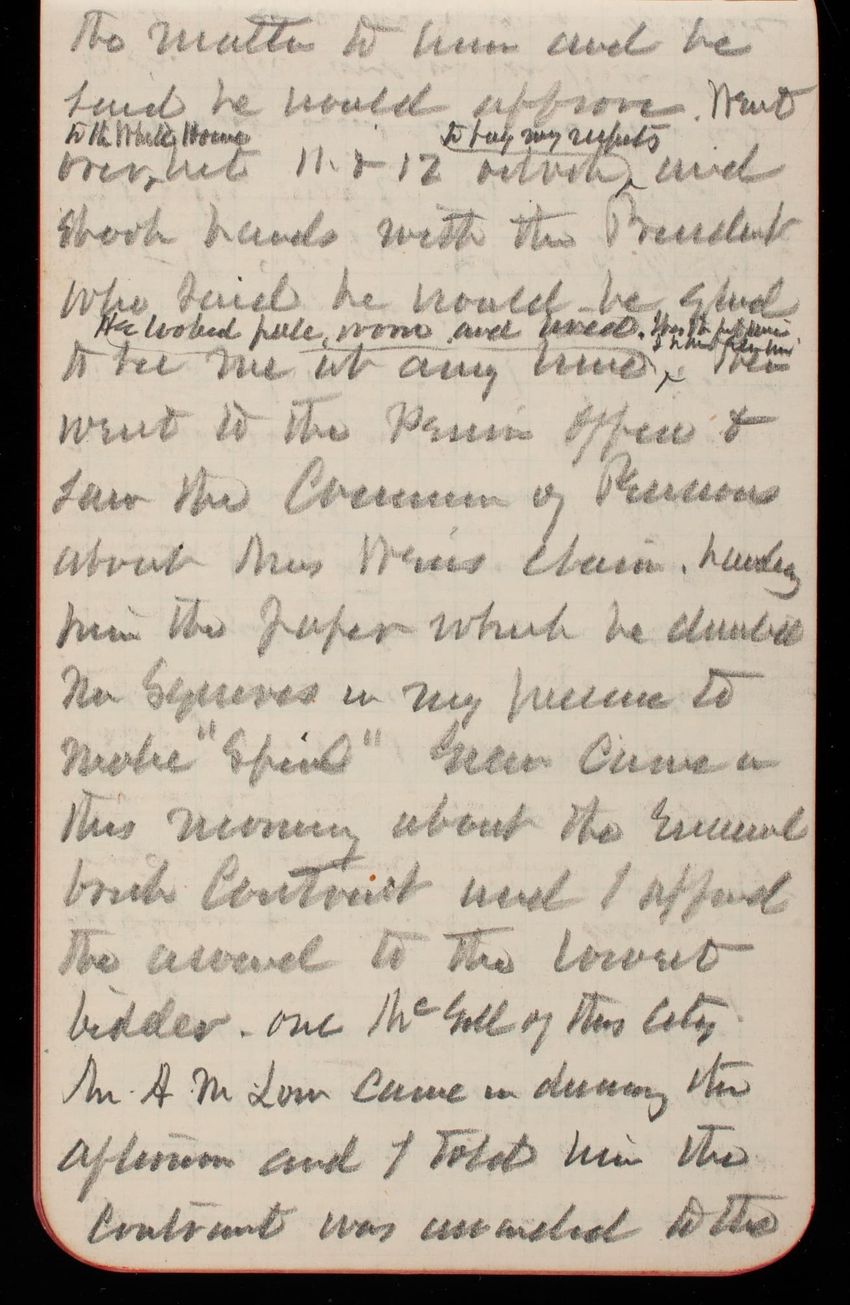 the matter to him and he
said he would approve. Went
to the White House to pay my respects
over, bet 11 & 12 oclock, and
shook hands with the President
who said he would be glad
He looked pale, worn and tired.
to see me at any time. Then
went to the Pension Office &
saw the Commr of Pensions
about Mrs claim. handing
him the paper which he directed
Mr Squires in my presence to
make "Special" Green came in
this morning about the Enamel
brick Contract and I approved
the award to the lowest
bidder. one McGill of this City.
Mr. A M Low came in during the
afternoon and I told him the
contract was awarded to the